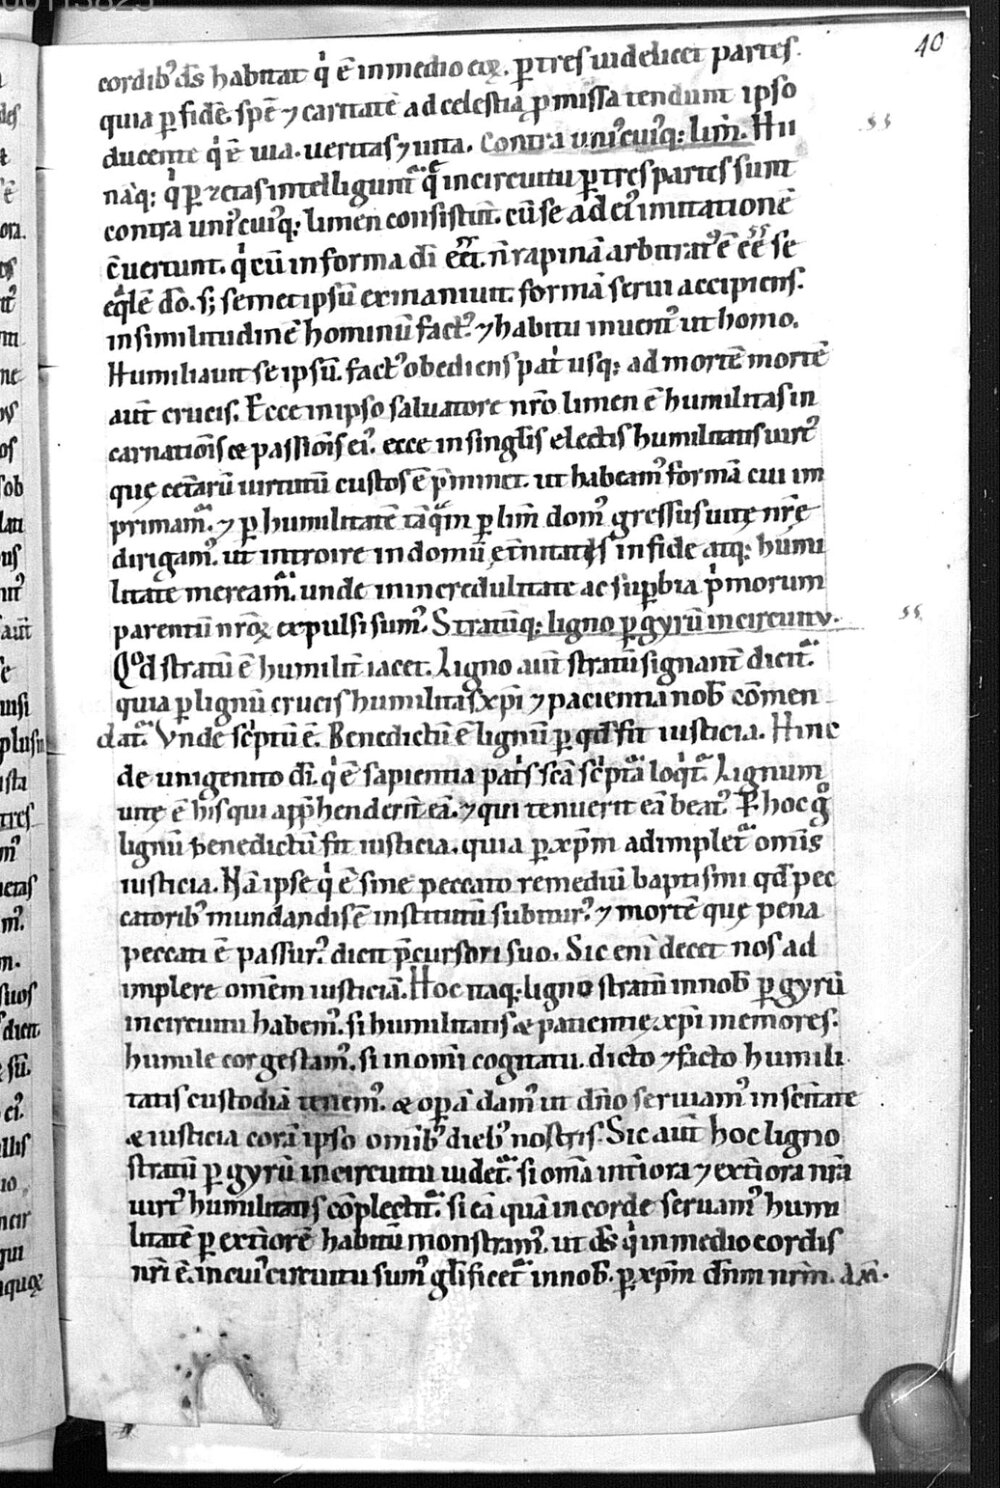 40
cordib᾽ ds̄ habitat qͥ ē in medio eaꝝ. ꝑ tres uidelicet partes.
quia ꝑ fidē. spē ⁊ caritatē ad celestia ꝓmissa tendunt ipso
ducente qͥ ē uia. ueritas ⁊ uita. Contra uniꝰcuiꝰq; lim̄. Hii
nāq; qͥ ꝑ ⁊etas intelligunt᷑ qͣ in circuitu ꝑ tres partes sunt
contra uniꝰcuiꝰq; limen consistunt. cū se ad eiꝰ imitationē
c̄uertunt. qͥ cū in forma dī eēt. n̄ rapinā arbitratꝰ ē eē se
eqͣlē dō. s; semetipsū exinaniuit. formā serui accipiens.
in similitudinē hominū factꝰ ⁊ habitu inuentꝰ ut homo.
Humiliauit se ipsū. factꝰ obediens patͥ usq; ad mortē mortē
aut̄ crucis. Ecce in ipso saluatore nr̄o limen ē humilitas in
carnatiōis ⁊ passiōis eiꝰ. ecce in singlīs electis humilitatis uirtꝰ
quę cet̄arū uirtutū custos ē p̄minet. ut habeamꝰ formā cui im
primam᷑. ⁊ ꝑ humilitatē tāqͣm ꝑ lim̄ domꝰ gressus uitę nr̄ę
dirigamꝰ. ut introire in domū ęt̄nitatis in fide atq; humi
litate meream᷑. unde in incredulitate ac suꝑbia pͥmorum
parentū nr̄oꝝ expulsi sumꝰ. Stratūq; ligno ꝑ gyrū in circuitu.
Qͦd stratū ē humilit̄ iacet. Ligno aut̄ stratū signant̄ dicit᷑.
quia ꝑ lignū crucis humilitas xp̄i ⁊ pacientia nob̄ cōmen
dat᷑. Vnde scͥptū ē. Benedictū ē lignū ꝑ qd̄ fit iusticia. Hinc
de unigenito dī. qͥ ē sapientia patͥs scā scͥptͣa loqͥt᷑. Lignum
uitę ē his qui app̄henderit̄ eā. ⁊ qui tenuerit eā beatꝰ. Ꝑ hoc gͦ
lignū benedictū fit iusticia. quia ꝑ xp̄m adimplet᷑ omīs
iusticia. Nā ipse qͥ ē sine peccato remediū baptismi qd̄ pec
catorib᾽ mundandis ē institutū subiturꝰ ⁊ mortē quę pena
peccati ē passurꝰ dicit p̄cursori suo. Sic enī decet nos ad
implere omēm iusticiā. Hoc itaq; ligno stratū in nob̄ ꝑ gyrū
in circuitu habemꝰ. si humilitatis ⁊ patientię xp̄i memores.
humile cor gestamꝰ. si in omī cogitatu. dicto ⁊ facto humili
tatis custodiā tenemꝰ. ⁊ oꝑā damꝰ ut dn̄o seruiamꝰ in sc̄itate
⁊ iusticia corā ipso omīb᾽ dieb᾽ nostris. Sic aut̄ hoc ligno
stratū ꝑ gyrū in circuitu uidet᷑. si om̄a int̄iora ⁊ ext̄iora nr̄a
uirtꝰ humilitatis cōplectit᷑. si eā quā in corde seruamꝰ humi
litatē ꝑ ext̄iorē habitū monstramꝰ. ut ds̄ qͥ in medio cordis
nr̄i ē. in cuiꝰ circuitu sumꝰ gl̄ificet᷑ in nob̄. ꝑ xp̄m dn̄m nr̄m. am̄.